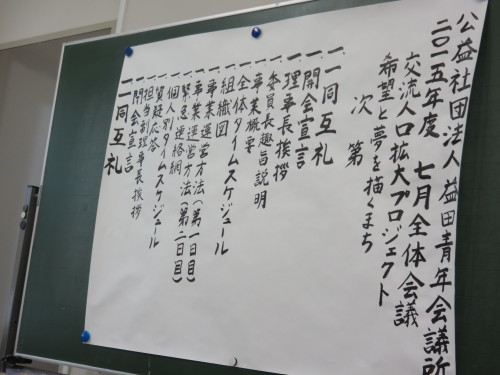 公益社団法人 益田青年会議所
二〇一五年度 七月全体会議
交流人口拡大プロジェクト
希望と夢を描くまち
次第
一、一同互礼
一、開会宣言
一、理事長挨拶
一、委員長趣旨説明
一、事業概要
一、全体タイムスケジュール
一、組織図
一、事業運営方法(第一日目)
一、事業運営方法(第二日目)
一、緊急連絡網
一、個人別タイムスケジュール
一、質疑応答
一、担当副理事長挨拶
一、閉会宣言
一、一同互礼